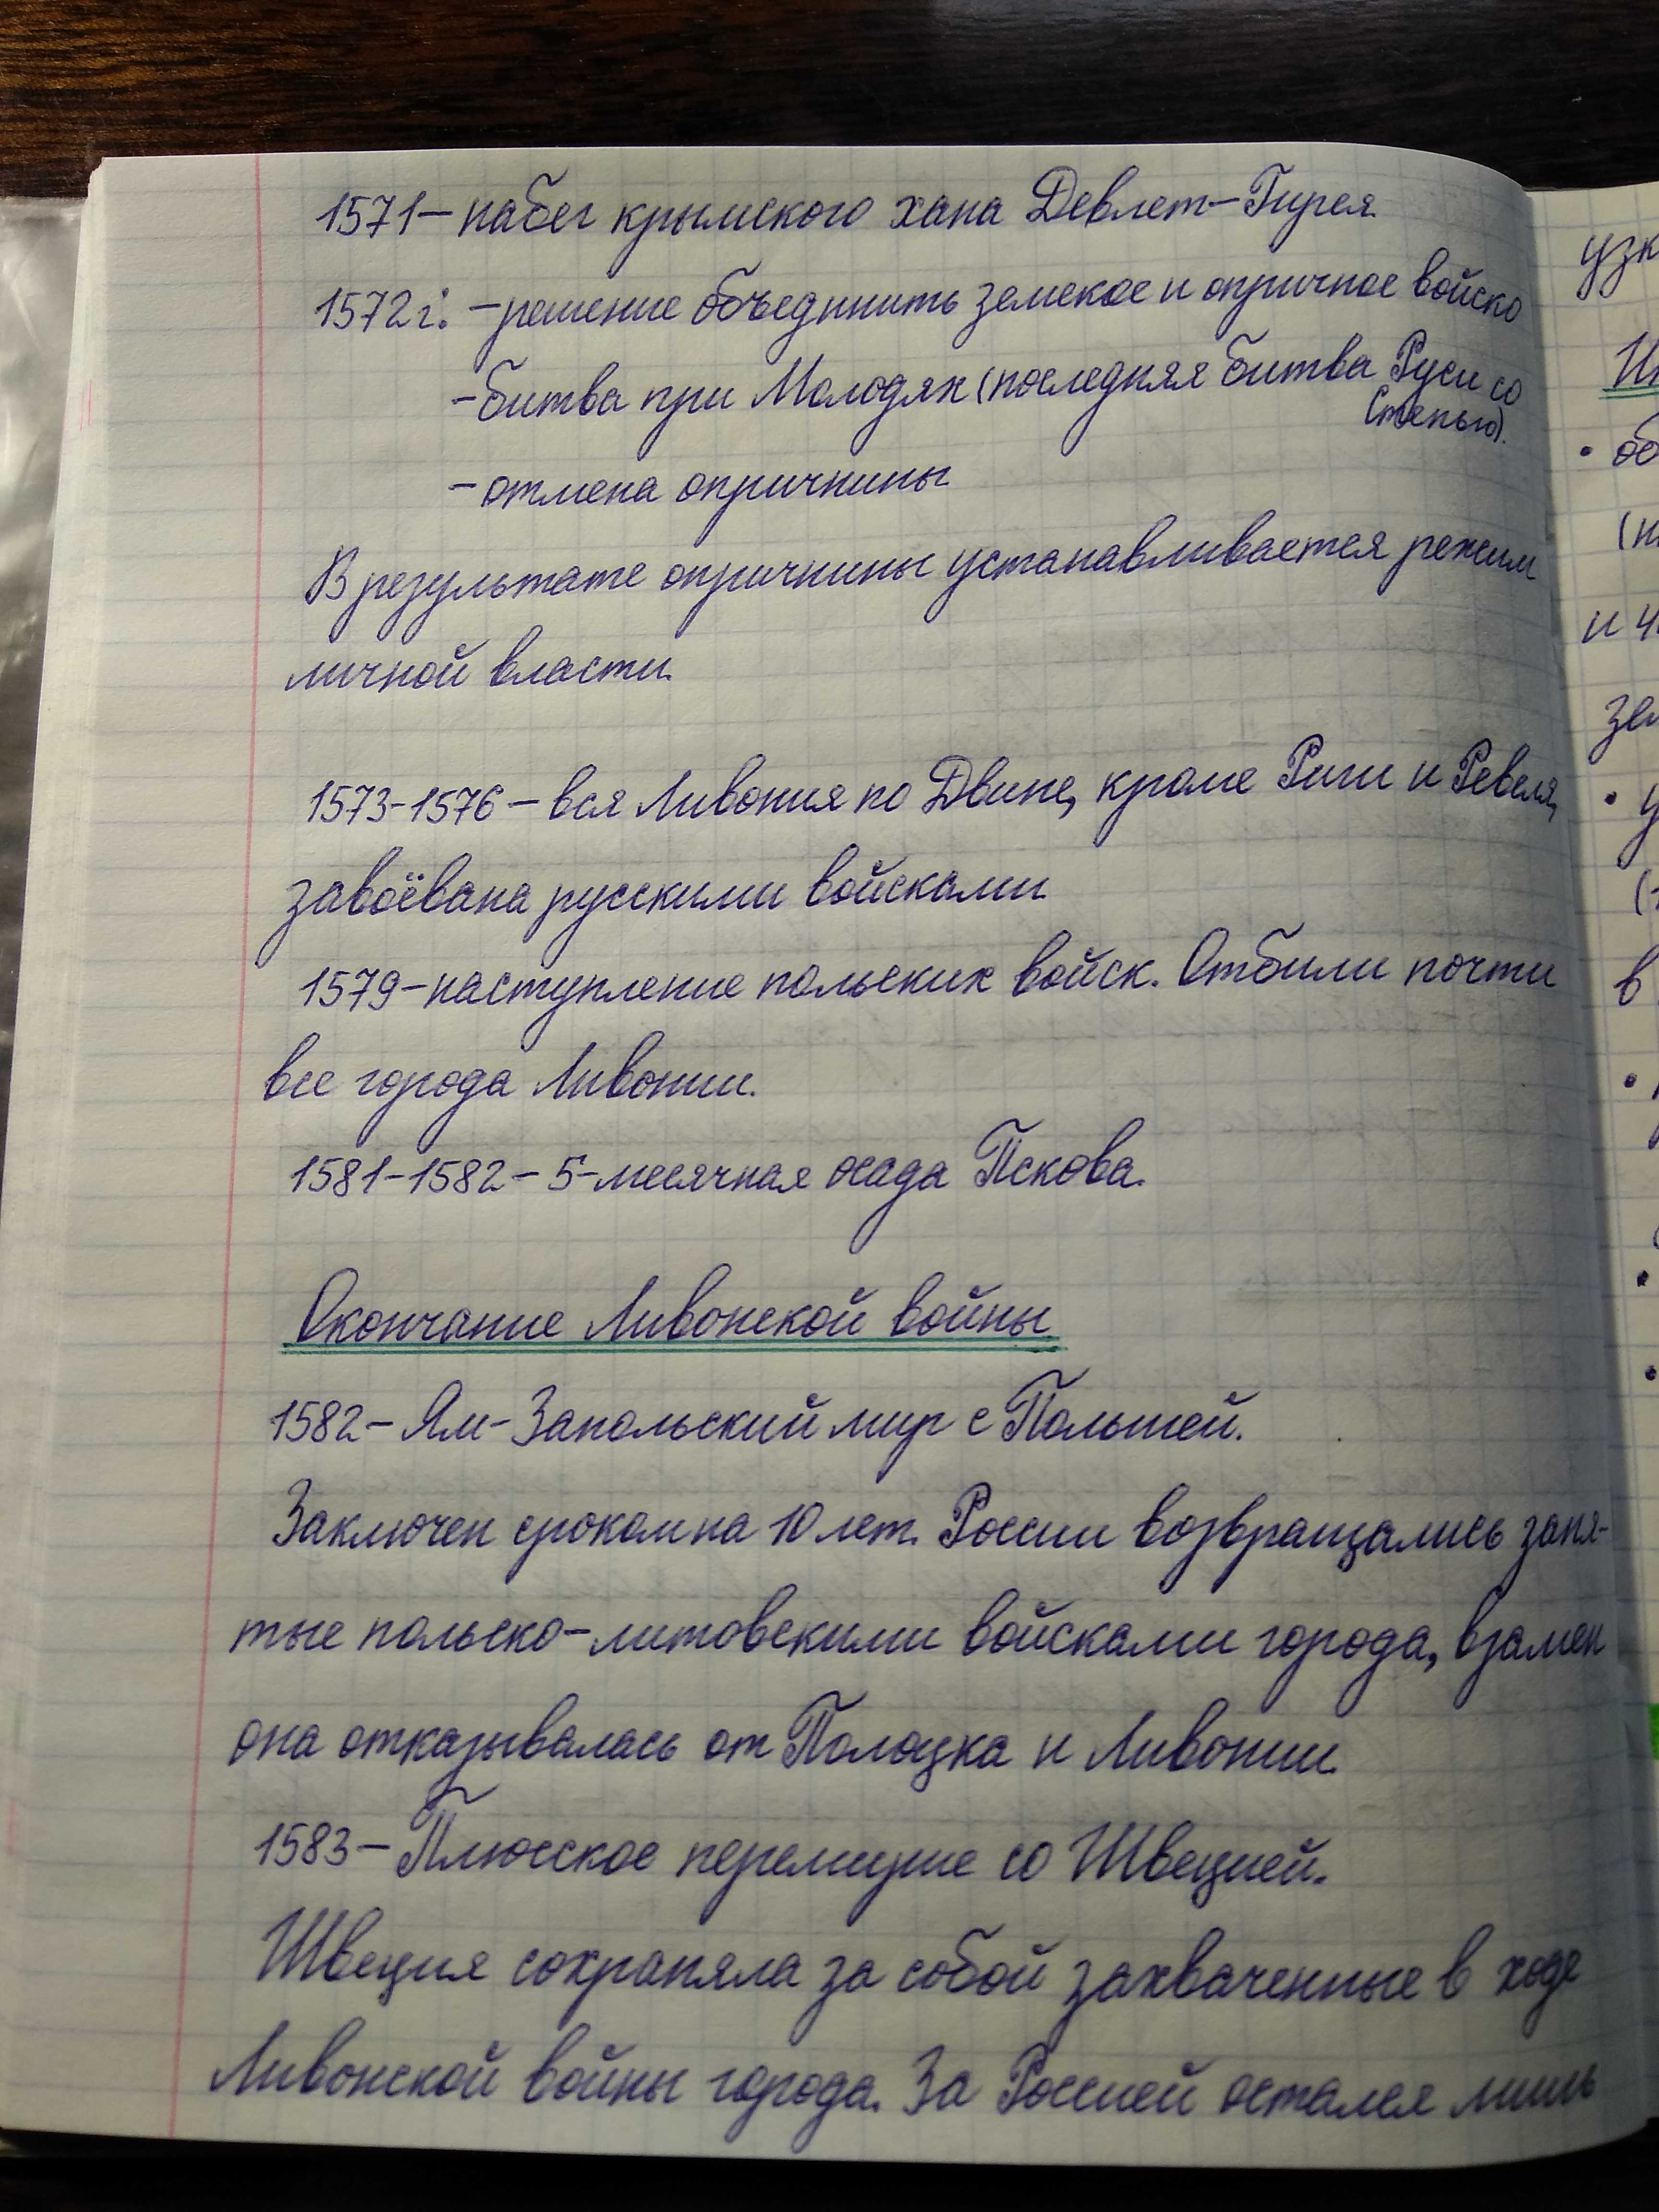 1571 – набег крымского хана Девлет-Гирея.
1572 г.: – решение объединить земское и опричное войско
– битва при Молодях (последняя битва Руси со
Степью).
– отмена опричнины
В результате опричнины устанавливается режим
личной власти.
1573-1576 – вся Ливония по Двине, кроме Риги и Ревеля,
завоёвана русскими войсками.
1579 – наступление польских войск. Отбили почти
все города Ливонии.
1581-1582 – 5-месячная осада Пскова.
Окончание Ливонской войны.
1582 – Ям-Запольский мир с Польшей.
Заключен сроком на 10 лет. России возвращались заня-
тые польско-литовскими войсками города, взамен
она отказывалась от Полоцка и Ливонии.
1583 – Плюсское перемирие со Швецией.
Швеция сохраняла за собой захваченные в ходе
Ливонской войны города. За Россией остался лишь
узк
об
и
зем
у
в